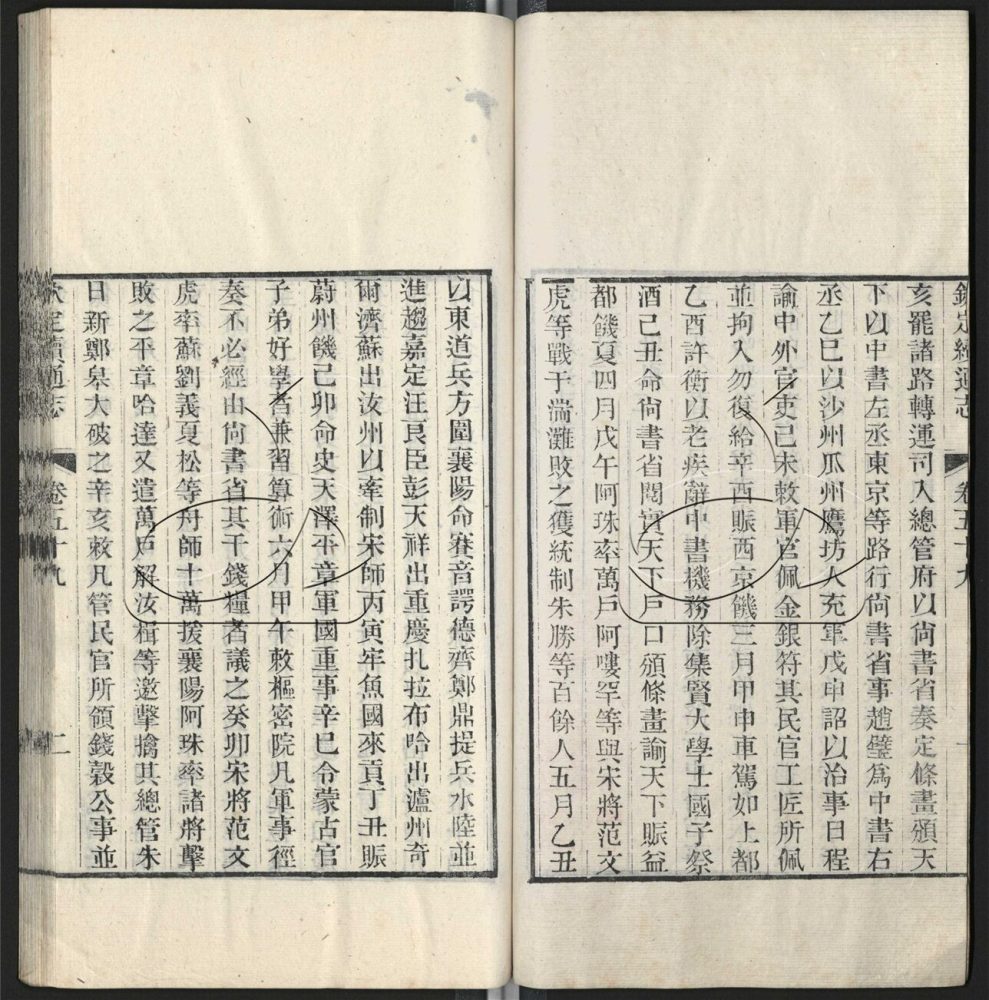 欽定續通志 卷五十九 一
亥罷諸路轉運司入總管府以尙書省奏定條畫頒天
下以中書左丞東京等路行尙書省事趙璧爲中書右
丞乙巳以沙州瓜州鷹坊人充軍戊申詔以治事日程
諭中外官吏己未敕軍官佩金銀符其民官工匠所佩
並拘入勿復給辛酉賑西京饑三月甲申車駕如上都
乙酉許衡以老疾辭中書機務除集賢大學士國子祭
酒己丑命尙書省閱實天下戸口頒條畫諭天下賑益
都饑夏四月戊午阿珠率萬戸阿嘍罕等與宋將范文
虎等戰于湍灘敗之獲統制朱勝等百餘人五月乙丑
以東道兵方圍襄陽命賽音諤德齊鄭鼎提兵水陸並
進趨嘉定汪艮臣彭天祥出重慶扎拉布哈出瀘州奇
爾濟蘇出汝州以牽制宋師丙寅牢魚國來貢丁丑賑
蔚州饑己卯命史天澤平章軍國重事辛巳令蒙古官
子弟好學者兼習算術六月甲午敕樞密院凡軍事徑
奏不必經由尙書省其干錢糧者議之癸卯宋將范文
虎率蘇劉義夏松等舟師十萬援襄陽阿珠率諸將擊
敗之平章哈達又遣萬戸解汝楫等邀擊擒其總管朱
日新鄭臯大破之辛亥敕凡管民官所領錢穀公事並
欽定續通志 卷五十九 二